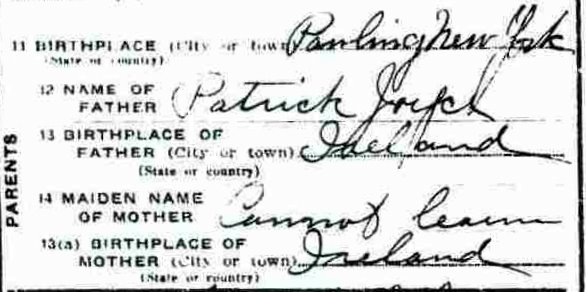 11 BIRTHPLACE (City or town) Pawling New York
(State or country)
12 NAME OF
FATHER Patrick Joyce
13 BIRTHPLACE OF
FATHER (City or town) Ireland
(State or country)
PARENTS
14 MAIDEN NAME
OF MOTHER Cannot learn
13(a) BIRTHPLACE OF
MOTHER (City or town) Ireland
(State or country)